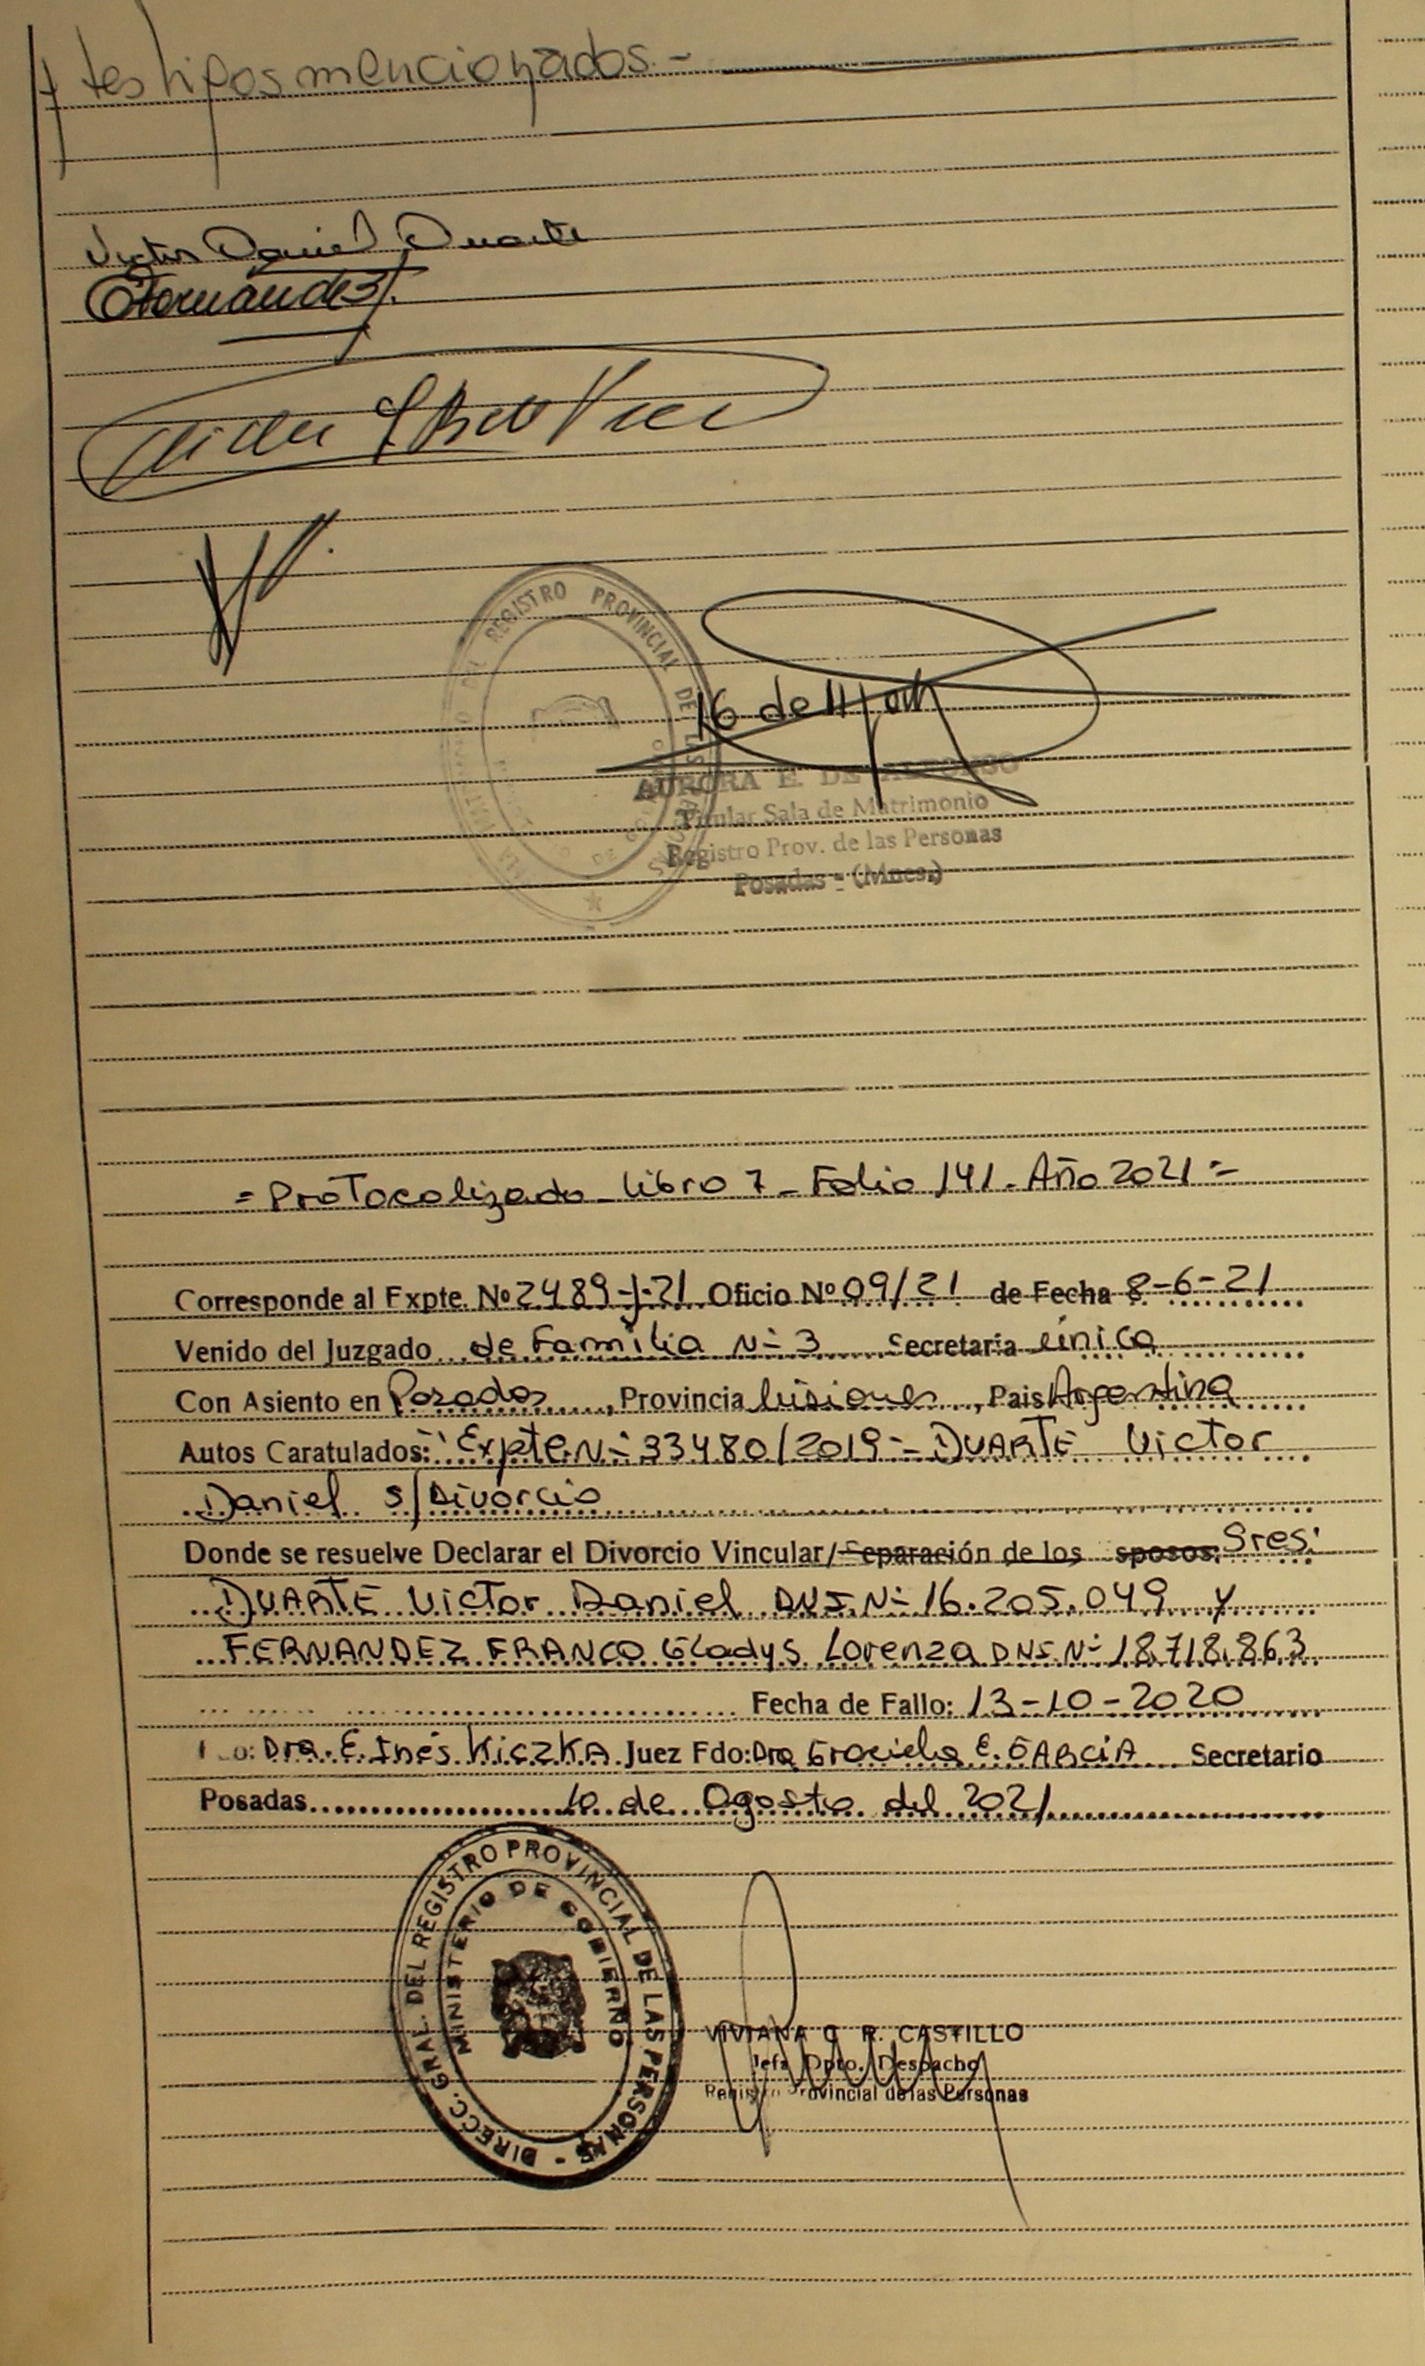 y testigos mencionados.-
Victor Daniel Duarte
Fernandez
REGISTRO PROVINCIAL DE LAS
16 de
AURORA E. DE ALFONSO
Titular Sala de Matrimonio
Registro Prov. de las Personas
Posadas - (Mnes.)
= Protocolizado - Libro 7 - Folio 141 - Año 2021 =
Corresponde al Expte. Nº 2489-J-21 Oficio Nº 09/21 de Fecha 8-6-21
Venido del Juzgado de Familia Nº 3 Secretaria única
Con Asiento en Posadas, Provincia Misiones, Pais Argentina
Autos Caratulados: "Expte Nº 33480/2019 - DUARTE Victor
Daniel s/Divorcio
Donde se resuelve Declarar el Divorcio Vincular/Separación de los sposos: Sres:
DUARTE Victor Daniel DNI Nº 16.205.049 y
FERNANDEZ FRANCO Gladys Lorenza DNI Nº 18.718.863
Fecha de Fallo: 13-10-2020
Dra. E. Inés KICZKA Juez Fdo: Dra Graciela E. GARCIA Secretario
Posadas 10 de Agosto del 2021
DIRECC. GRAL. DEL REGISTRO PROVINCIAL DE LAS PERSONAS -
MINISTERIO DE GOBIERNO
VIVIANA C. R. CASTILLO
Jefa Dpto. Despacho
Registro Provincial de las Personas